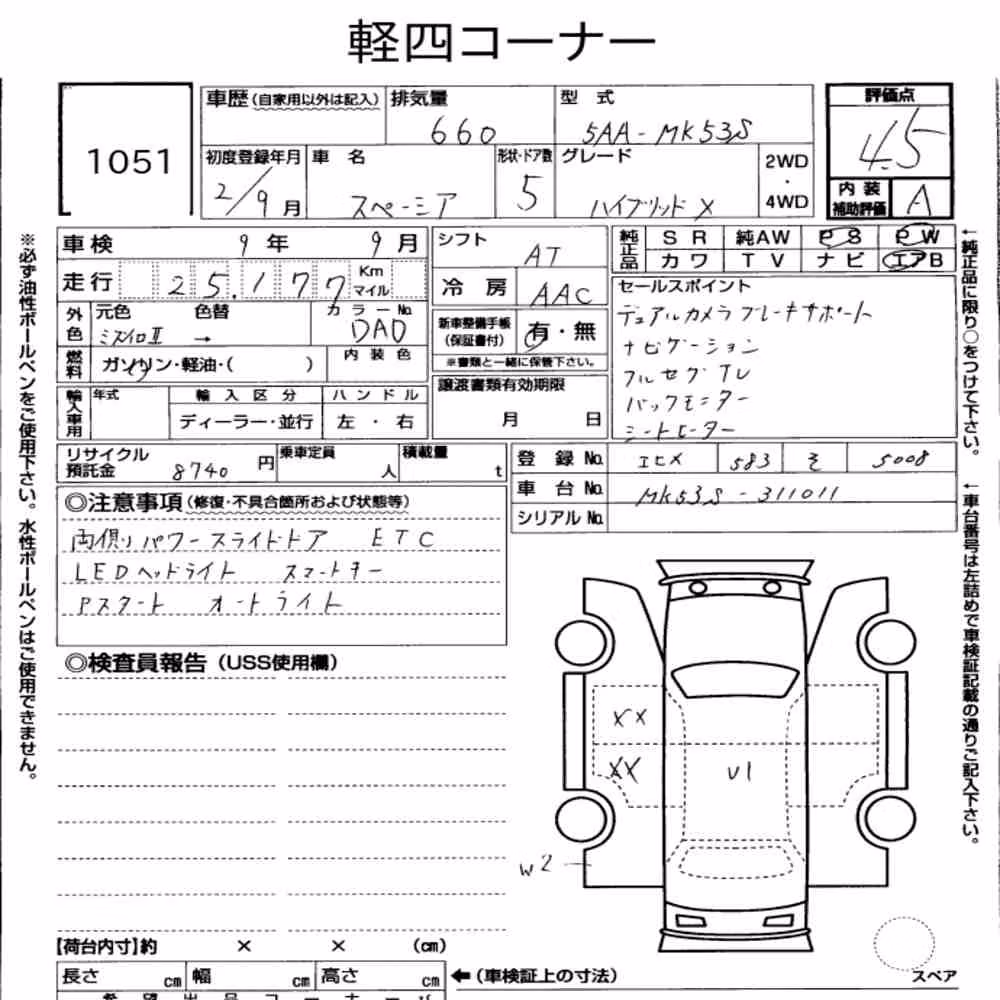 軽四コーナー
1051
車歴(自家用以外は記入) 排気量 型式 評価点
660 5AA-MK53S 4.5
初度登録年月 車名 形状・ドア数 グレード 2WD・4WD
2/9月 スペーシア 5 ハイブリッドX
内装補助評価 A
車検 9年 9月
走行 25,177 Km マイル
外色 元色 色替 カラーNo.
ミズイロⅡ → DAD
燃料 ガソリン・軽油・( ) 内装色
輸入車用 年式 輸入区分 ハンドル
ディーラー・並行 左・右
シフト AT
冷房 AAC
新車整備手帳(保証書付) 有・無
※書類と一緒に保管下さい。
譲渡書類有効期限
月 日
純正品 SR 純AW PS PW
カワ TV ナビ エアB
セールスポイント
デュアルカメラブレーキサポート
ナビゲーション
フルセグTV
バックモニター
シートヒーター
リサイクル預託金 8740円 乗車定員 人 積載量 t
登録No. 583 そ 5008
車台No. MK53S-311011
シリアルNo.
◎注意事項(修復・不具合箇所および状態等)
両側パワースライドドア ETC
LEDヘッドライト スマートキー
Pスタート オートライト
◎検査員報告(USS使用欄)
XX
XX
U1
W2
スペア
【荷台内寸】約 × × (cm)
長さ cm 幅 cm 高さ cm ←(車検証上の寸法)
希望出品コーナー
※必ず油性ボールペンをご使用下さい。水性ボールペンはご使用できません。
←純正品に限り○をつけて下さい。
←車台番号は左詰めで車検証記載の通りご記入下さい。